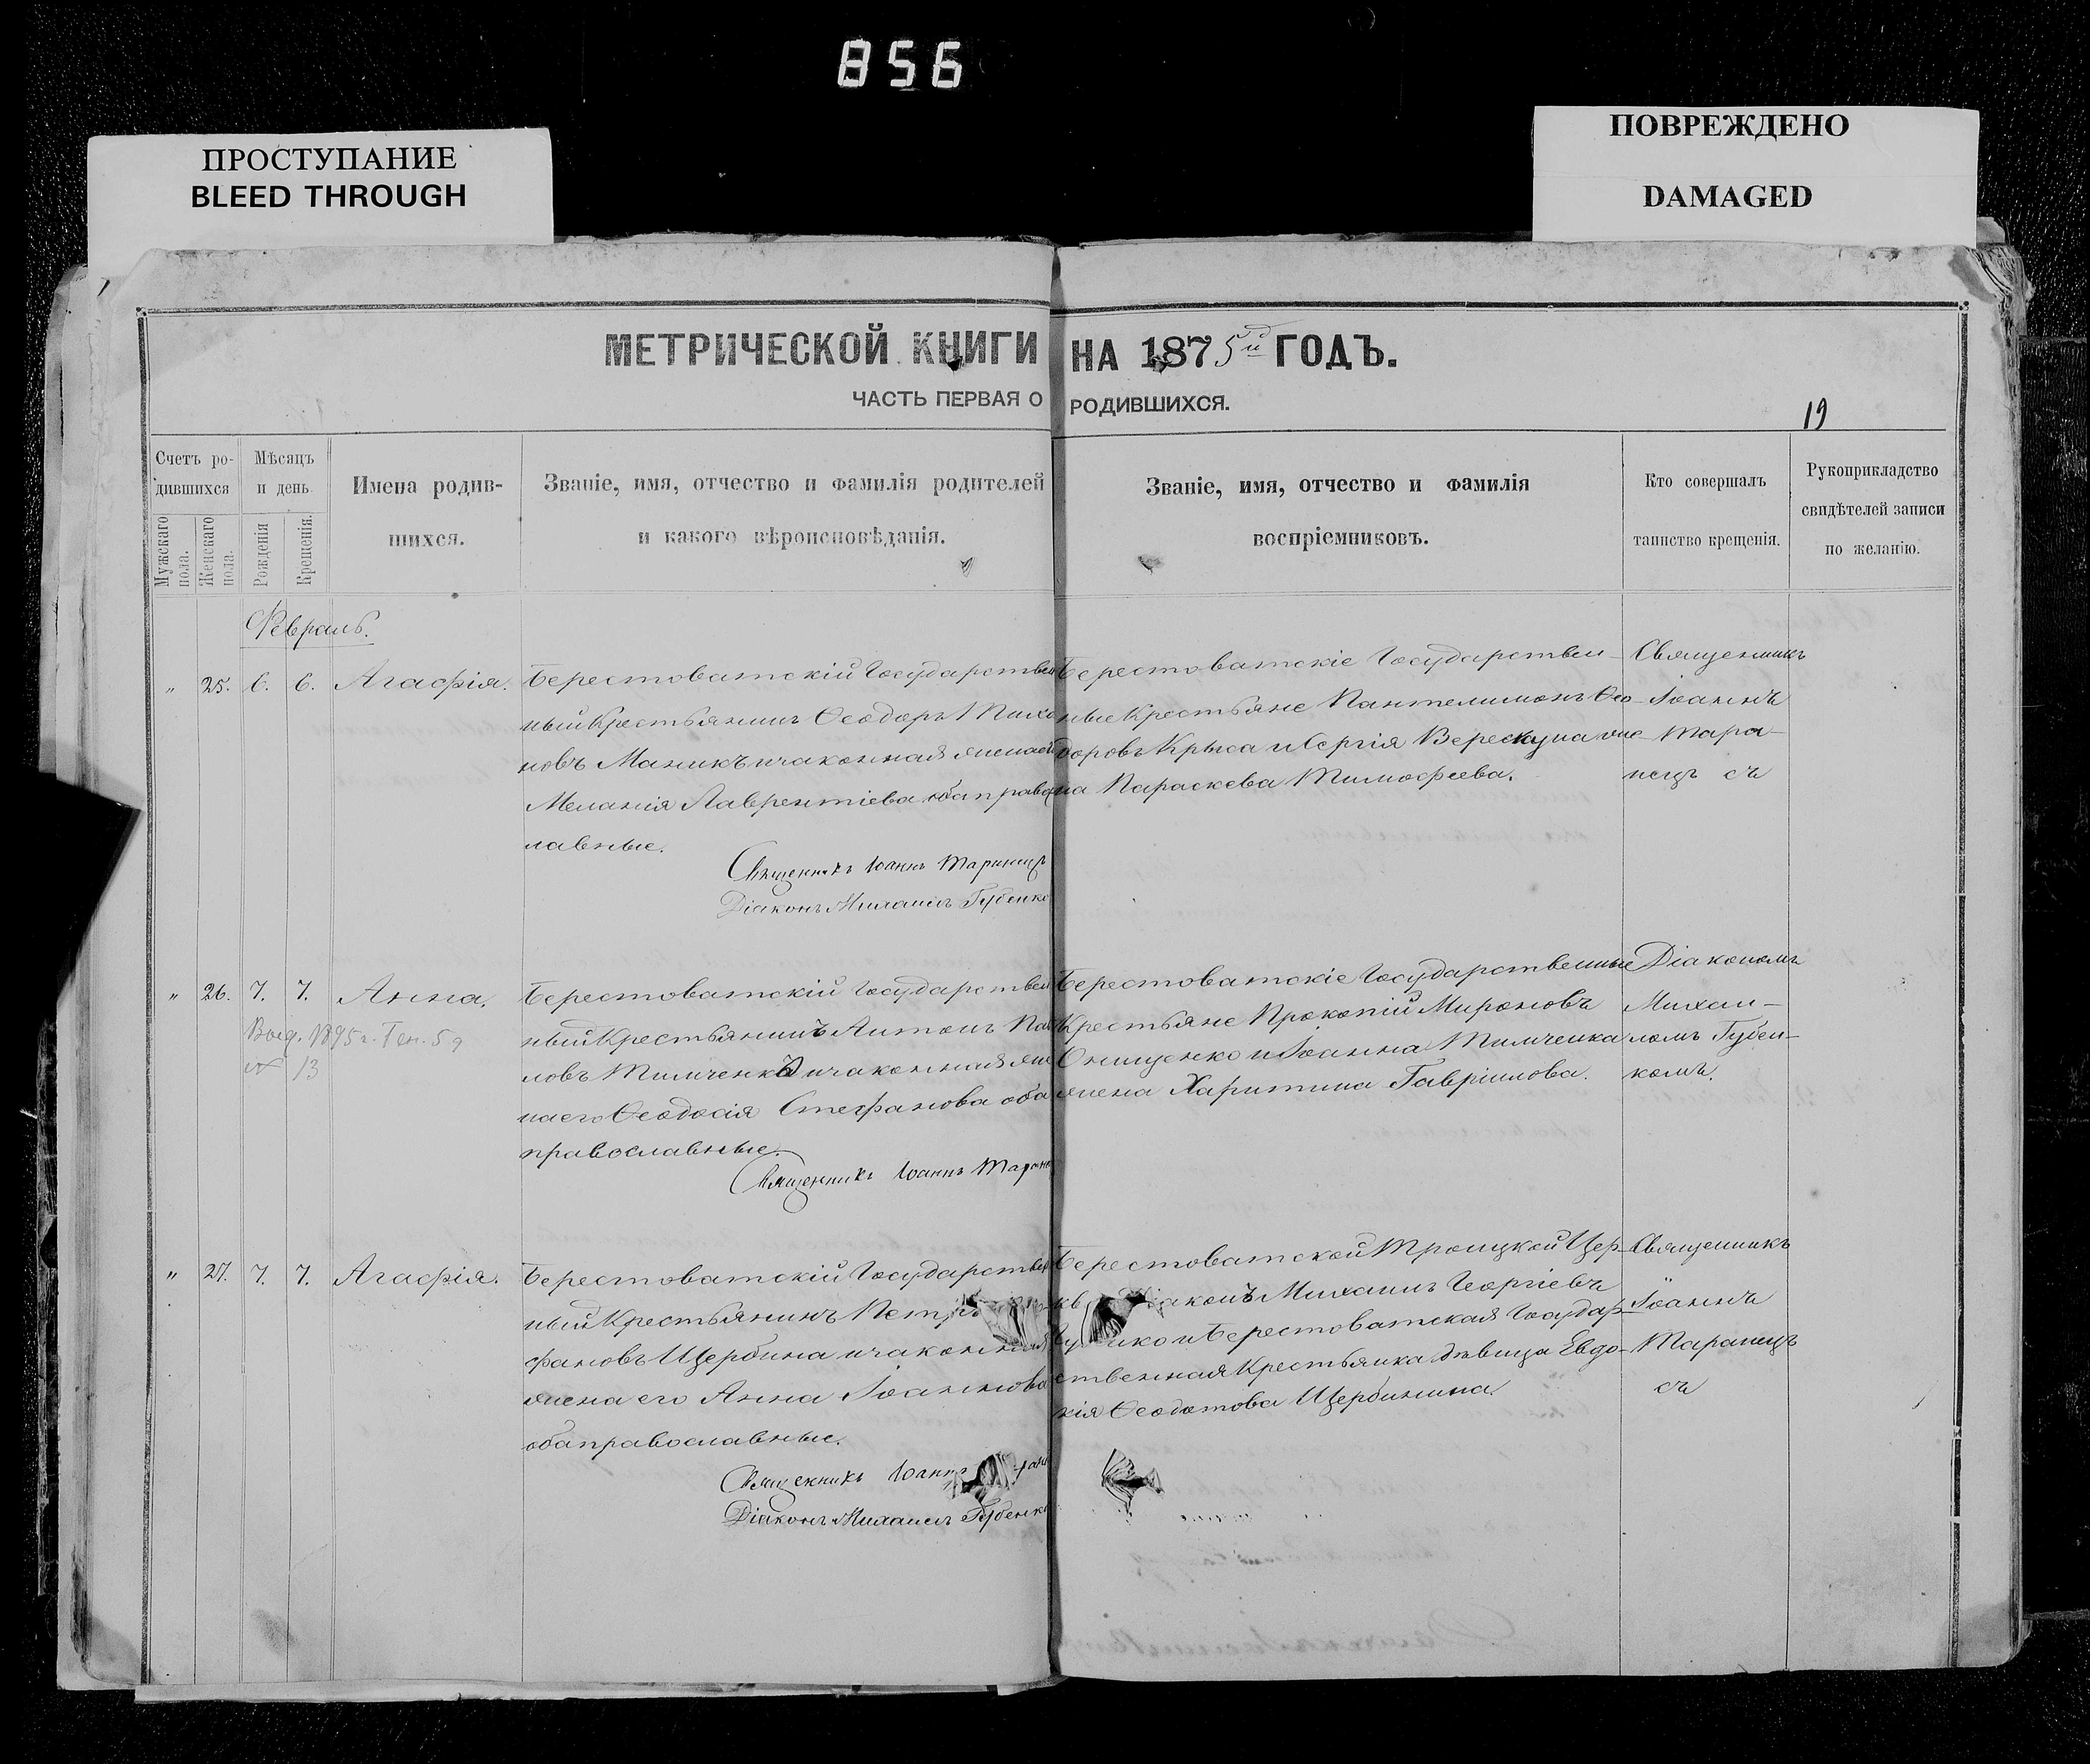 856
ПРОСТУПАНИЕ
BLEED THROUGH
ПОВРЕЖДЕНО
DAMAGED
МЕТРИЧЕСКОЙ КНИГИ НА 1875й ГОДЪ.
ЧАСТЬ ПЕРВАЯ О РОДИВШИХСЯ.
19
Счетъ ро-
дившихся
Мужскаго пола.
Женскаго пола.
Мѣсяцъ
и день
Рожденія
Крещенія.
Имена родив-
шихся.
Званіе, имя, отчество и фамилія родителей
и какого вѣроисповѣданія.
Званіе, имя, отчество и фамилія
воспріемниковъ.
Кто совершалъ
таинство крещенія.
Рукоприкладство
свидѣтелей записи
по желанію.
Февраль.
" 25. 6. 6. Агафія.
Берестоватскій Государствен
ный Крестьянинъ Ѳеодоръ Тихо
новъ Маникъ и законная жена его
Меланія Лаврентіева оба право
лавные.
Священникъ Іоаннъ Таранецъ
Діаконъ Михаилъ Губенко
Берестоватскіе Государствен-
ные Крестьяне Пантелимонъ Ѳео-
доровъ Крыса и Сергія жe-
на Параскева Тимофеева.
Священникъ
Іоаннъ
Тара-
нецъ съ
" 26. 7. 7. Анна.
1895 г.
№ 13
Берестоватскій Государствен
ный Крестьянинъ Антонъ Пав
ловъ Тимченко и законная же
на его Ѳеодосія Стефанова оба
православные.
Священникъ Іоаннъ Таране
Берестоватскіе Государственные
Крестьяне Прокопій Мироновъ
Онищенко и Іоанна Тимченка
жена Харитина Гавріилова.
Діакономъ
Михаи-
ломъ Губен-
комъ.
" 27. 7. 7. Агафія.
Берестоватскій Государствен
ный Крестьянинъ Петръ
фановъ Щербина и законная
жена его Анна Іоаннова
оба православные.
Священникъ Іоаннъ
Діаконъ Михаилъ Губенко
Берестоватской Троицкой Цер-
кв Діаконъ Михаилъ Георгіевъ
Губенко и Берестоватская Государ-
ственная Крестьянка дѣвица Евдо-
кія Ѳеодотова Щербинина.
Священникъ
Іоаннъ
Таранецъ
съ